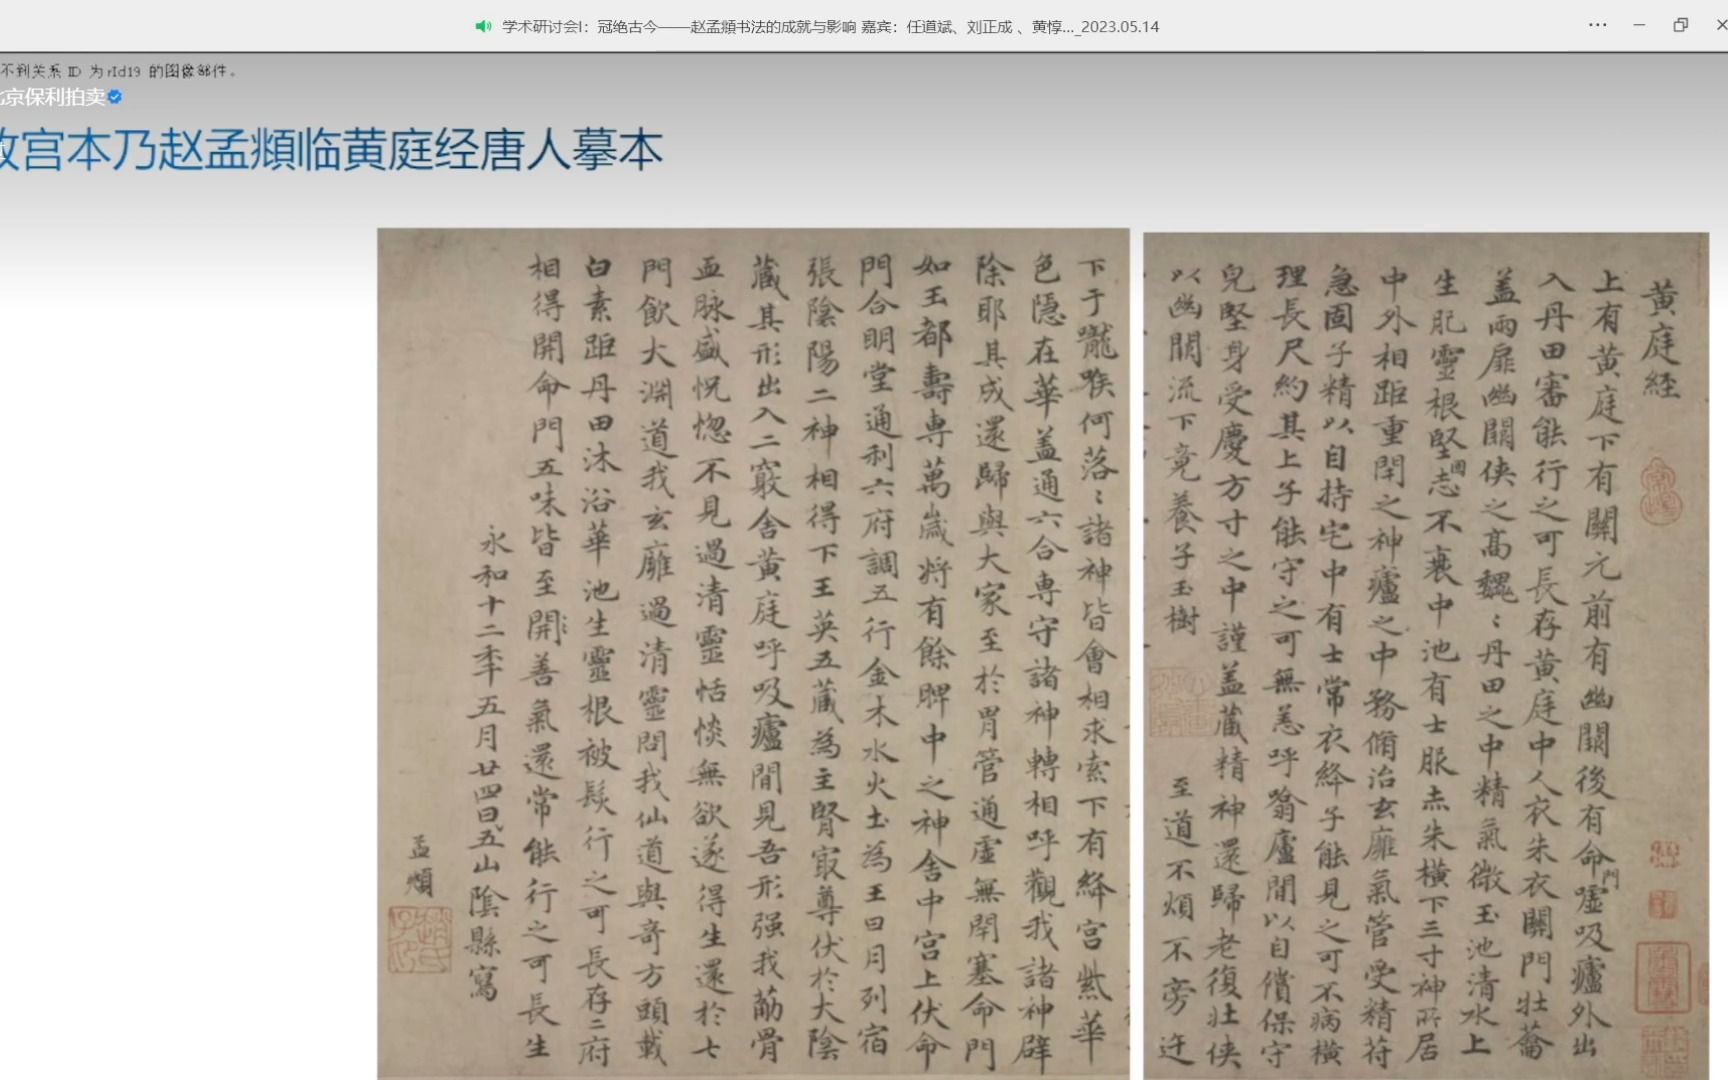 学术研讨会I：冠绝古今——赵孟頫书法的成就与影响 嘉宾：任道斌、刘正成 、黄惇..._2023.05.14
不到关系 ID 为 rId19 的图像部件。
北京保利拍卖
故宫本乃赵孟頫临黄庭经唐人摹本
黃庭經
上有黄庭下有關元前有幽闕後有命門嘘吸廬外出
入丹田審能行之可長存黄庭中人衣朱衣關門壯蘥
盖兩扉幽闕俠之髙魏〻丹田之中精氣微玉池清水上
生肥靈根堅固志不衰中池有士服赤朱横下三寸神所居
中外相距重閇之神廬之中務脩治玄癰氣管受精符
急固子精以自持宅中有士常衣絳子能見之可不病横
理長尺約其上子能守之可無恙呼翕廬間以自償保守
皃堅身受慶方寸之中謹盖藏精神還歸老復壯俠
以幽闕流下竟養子玉樹 至道不煩不旁迕
下于嚨喉何落〻諸神皆會相求索下有絳宫紫華
色隱在華盖通六合專守諸神轉相呼觀我諸神辟
除耶其成還歸與大家至於胃管通虚無閇塞命門
如玉都壽專萬歲将有餘脾中之神舍中宫上伏命
門合明堂通利六府調五行金木水火土為王日月列宿
張陰陽二神相得下王英五藏為主腎㝡尊伏於大陰
藏其形出入二竅舍黄庭呼吸廬間見吾形强我筋骨
血脉盛怳惚不見過清靈恬惔無欲遂得生還於七
門飲大淵道我玄廱過清靈問我仙道與奇方頭載
白素距丹田沐浴華池生靈根被髮行之可長存二府
相得開命門五味皆至開善氣還常能行之可長生
永和十二年五月廿四日五山陰縣寫
孟頫